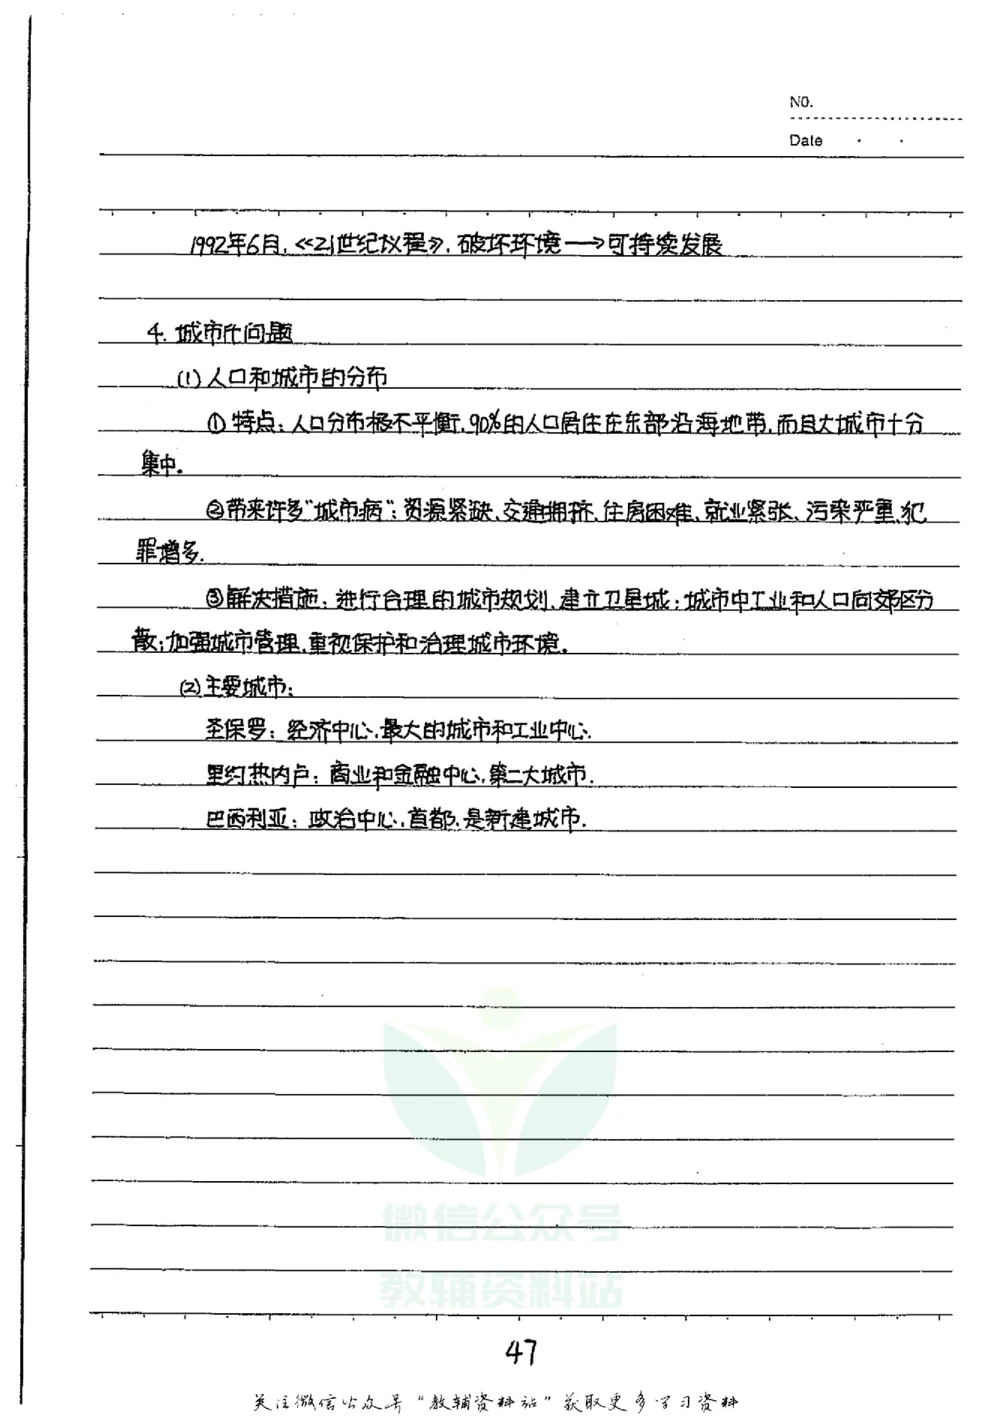 NO.
Date
1992年6月,《21世纪议程》,破坏环境→可持续发展
4. 城市化问题
(1)人口和城市的分布
①特点:人口分布极不平衡,90%的人口居住在东部沿海地带,而且大城市十分
集中.
②带来许多"城市病":资源紧缺、交通拥挤、住房困难、就业紧张、污染严重、犯
罪增多.
③解决措施:进行合理的城市规划,建立卫星城;城市中工业和人口向郊区分
散;加强城市管理,重视保护和治理城市环境.
(2)主要城市:
圣保罗:经济中心,最大的城市和工业中心.
里约热内卢:商业和金融中心,第二大城市.
巴西利亚:政治中心,首都,是新建城市.
微信公众号
教辅资料站
47
关注微信公众号"教辅资料站"获取更多学习资料